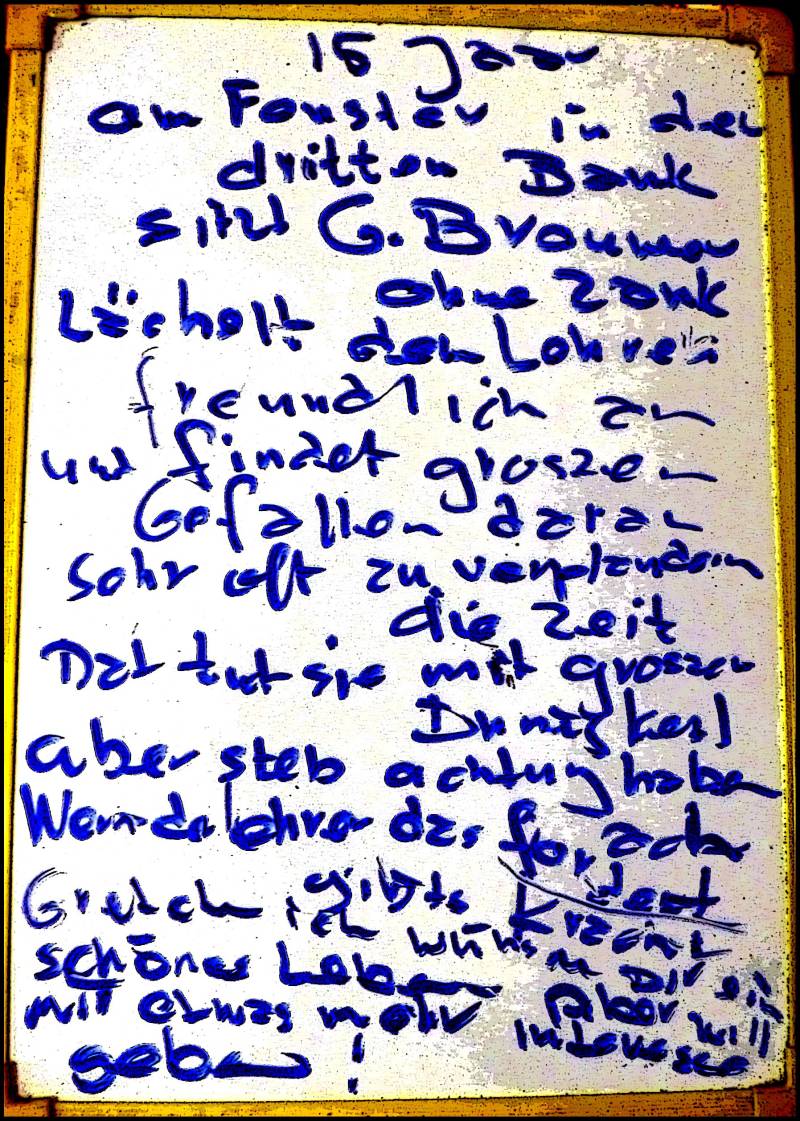 15 Jaar
am Fenster in der
dritten Bank
sitzt G. Brouwer
ohne Zank
Lächelt den Lehrer
freundlich an
und findet groszen
Gefallen daran
Sehr oft zu verplaudern
die Zeit
Dat tut sie mit groszer
aber steb achtung haben
Wenn da lehrer das
fordert
Gretch gibts Krach
ich wünsch Dir ein
schönes Leben
Aber will
mit etwas mehr Interesse
geben !